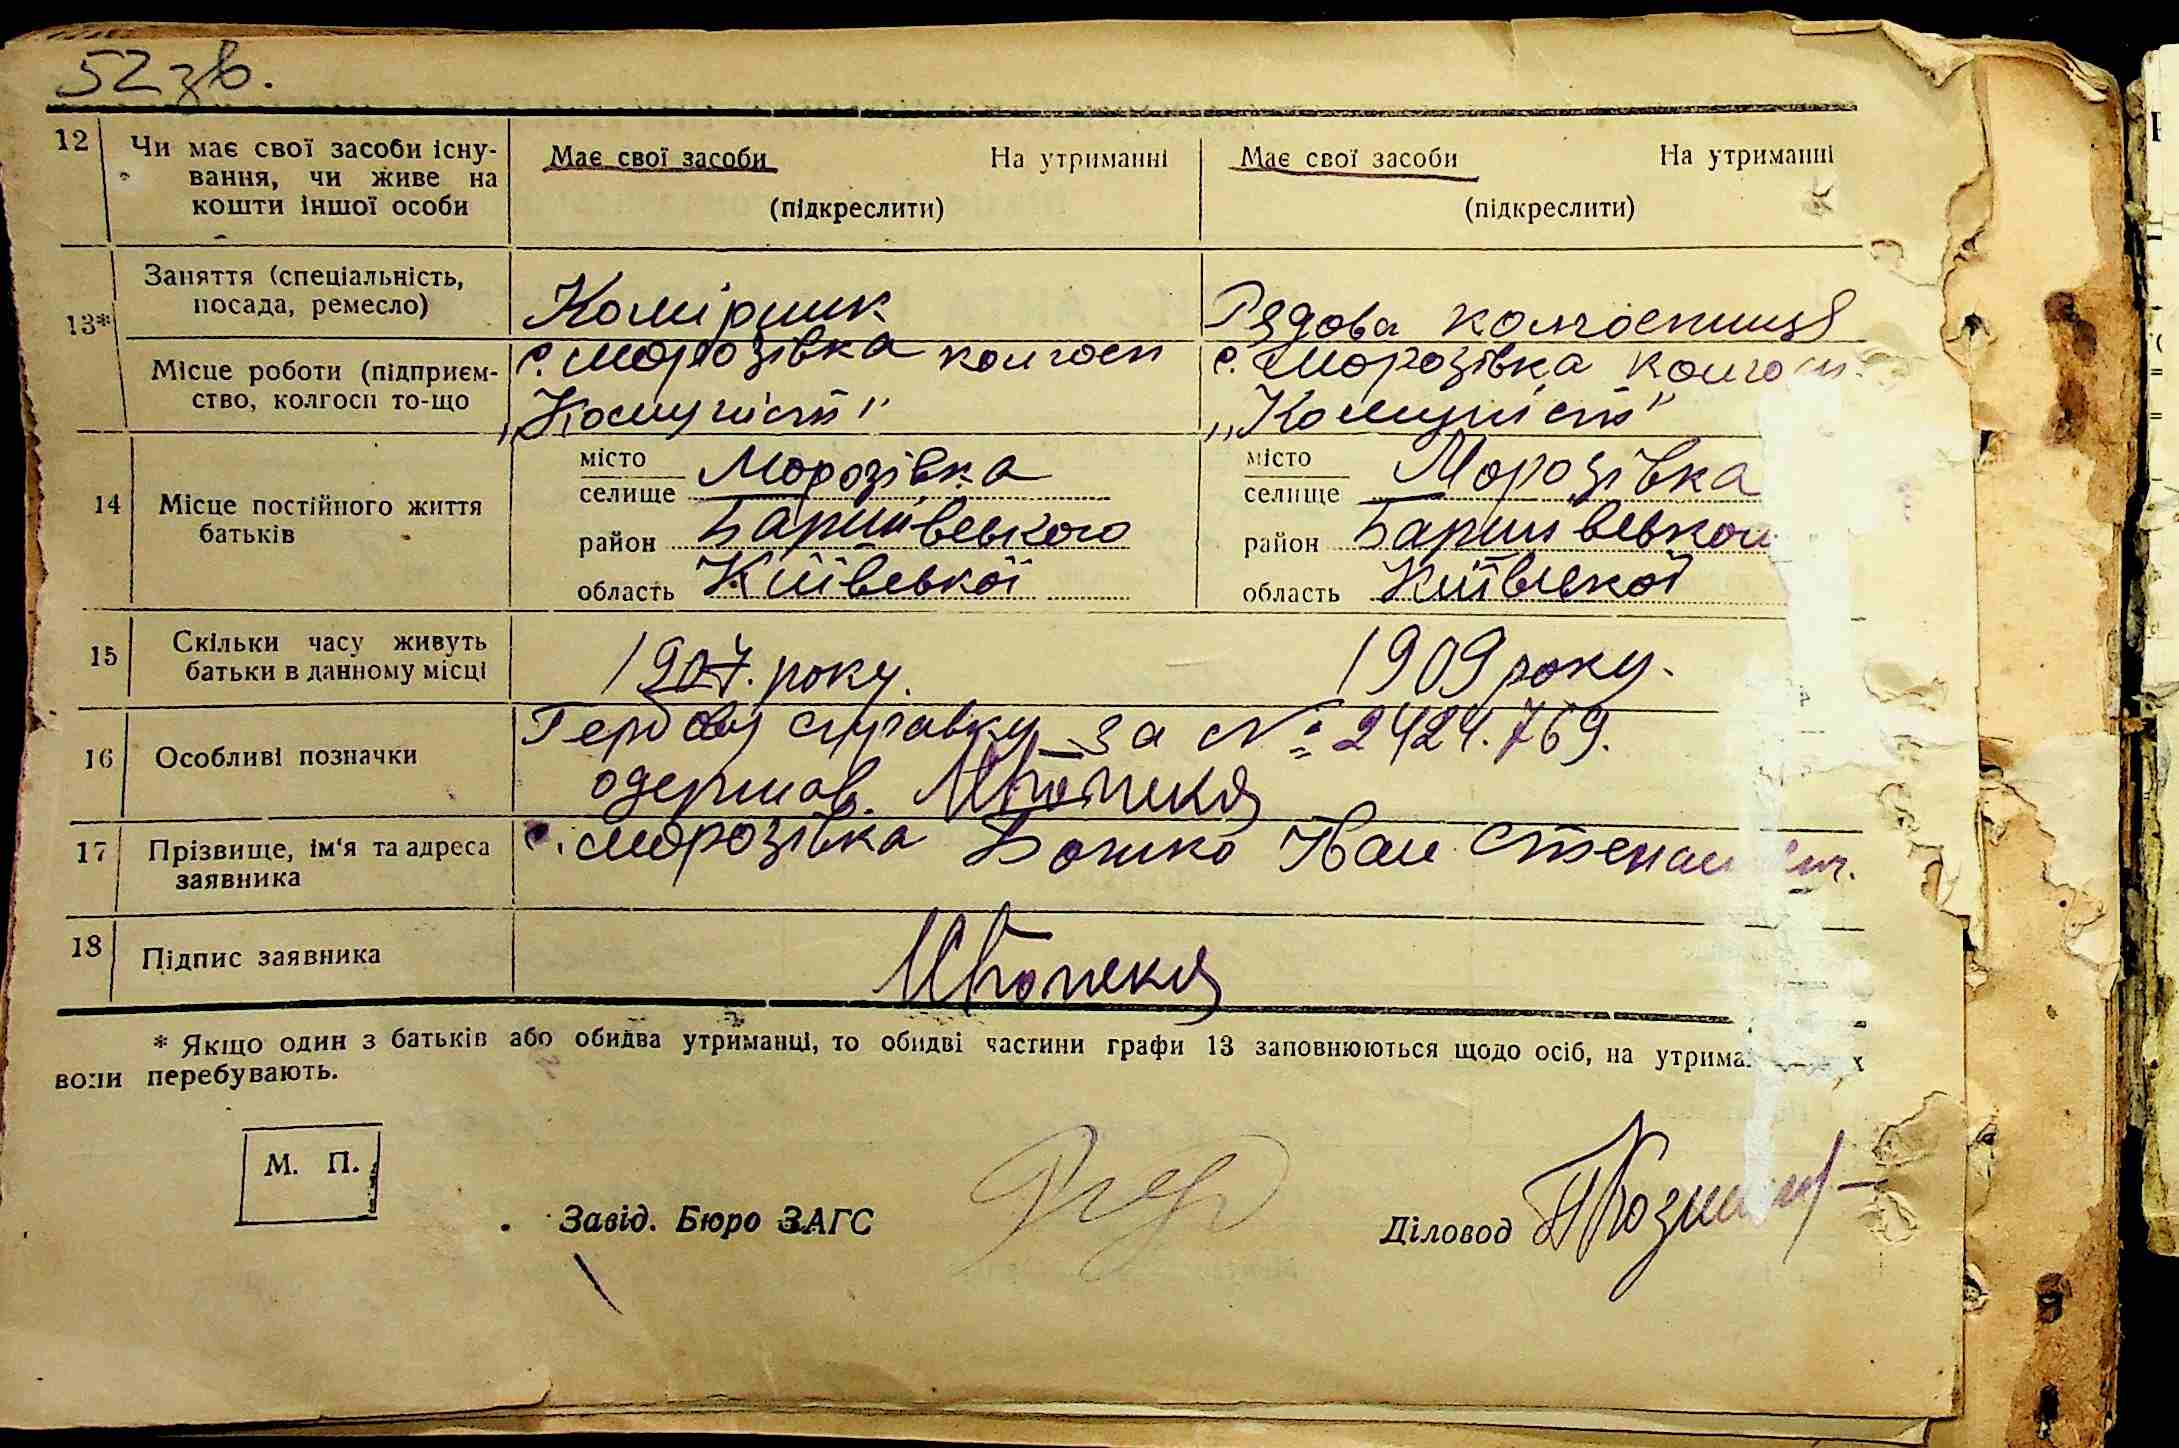 52 зв.
12 Чи має свої засоби існу-
вання, чи живе на
кошти іншої особи
Має свої засоби На утриманні
(підкреслити)
Має свої засоби На утриманні
(підкреслити)
13* Заняття (спеціальність,
посада, ремесло)
Комірник
Рядова колгоспниця
Місце роботи (підприєм-
ство, колгосп то-що
с. Морозівка колгосп
„Комуніст"
с. Морозівка колгосп
„Комуніст"
14 Місце постійного життя
батьків
місто
селище Морозівка
район Баришівського
область Київської
місто
селище Морозівка
район Баришівського
область Київської
15 Скільки часу живуть
батьки в данному місці
1907. року.
1909 року.
16 Особливі позначки
Гербову справку за №: 2424.769.
одержав.
17 Прізвище, ім'я та адреса
заявника
с. Морозівка Божко Іван Степанович.
18 Підпис заявника
* Якщо один з батьків або обидва утриманці, то обидві частини графи 13 заповнюються щодо осіб, на
вони перебувають.
М. П.
Завід. Бюро ЗАГС
Діловод